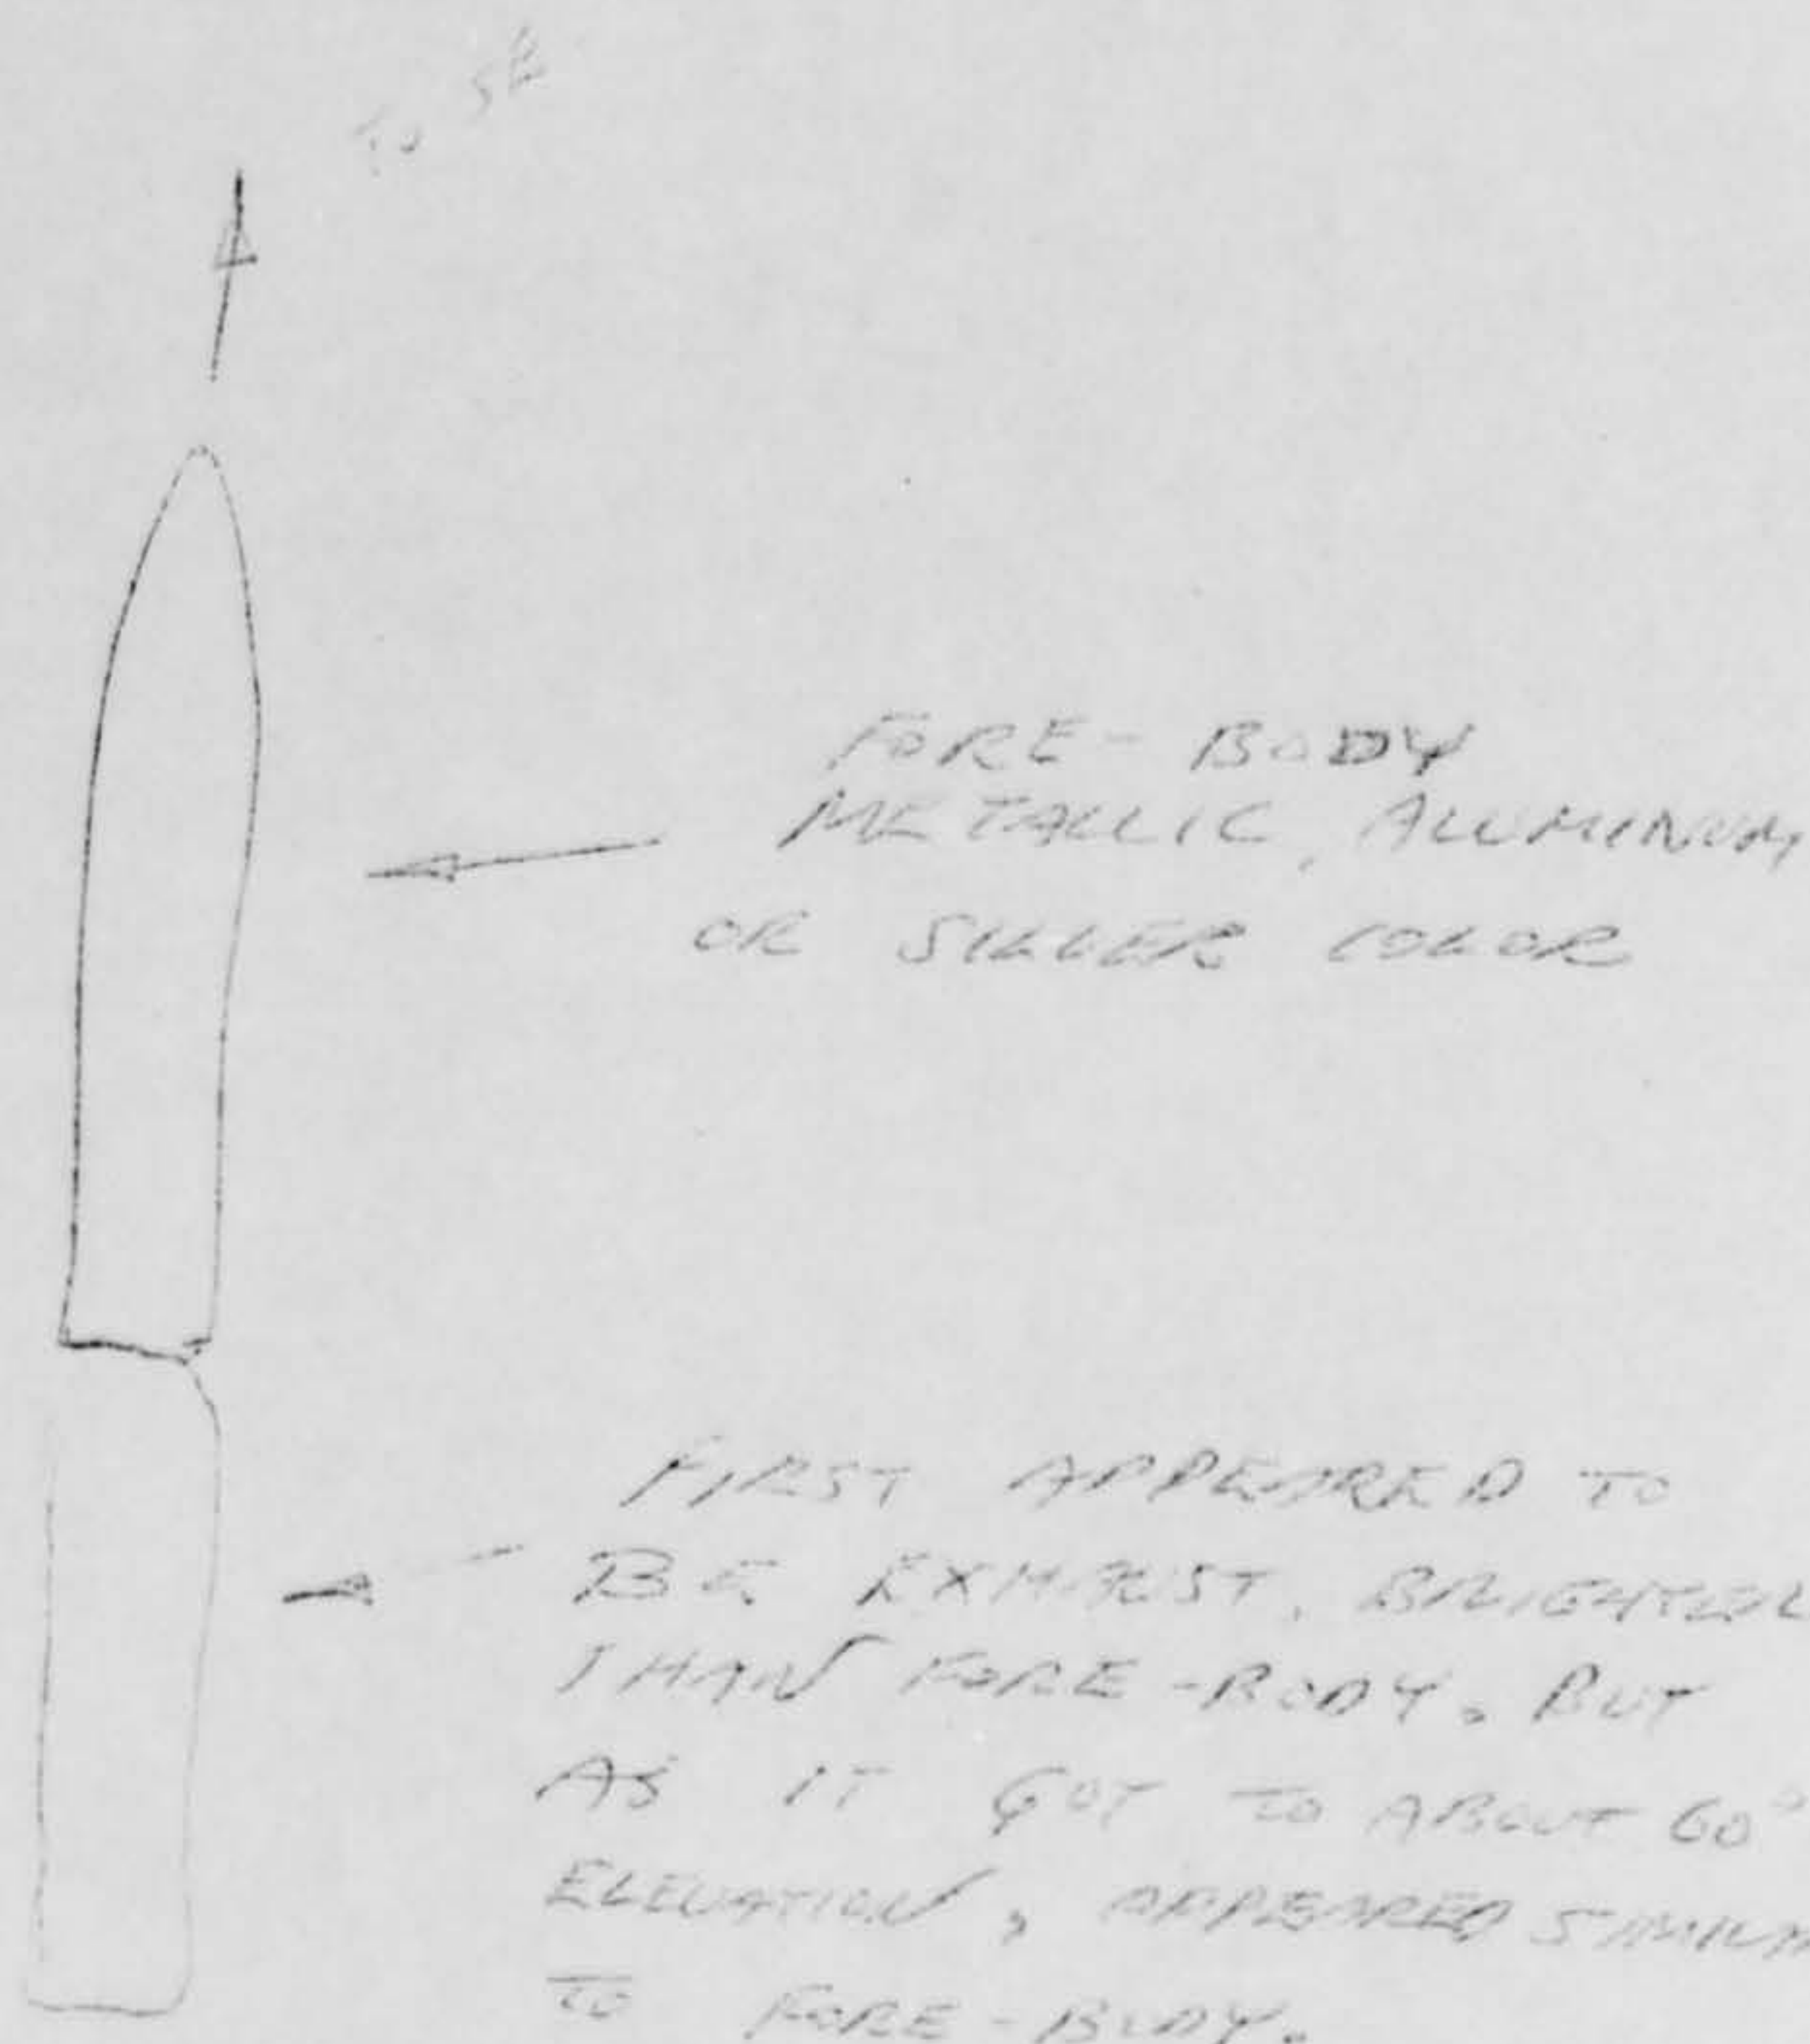 TO SE
FORE - BODY
METALLIC, ALUMINUM,
OR SILVER COLOR
FIRST APPEARED TO
BE EXHAUST. BRIGHTER
THAN FORE-BODY. BUT
AS IT GOT TO ABOUT 60°
ELEVATION, APPEARED SIMILAR
TO FORE-BODY.